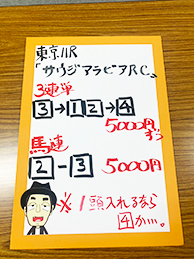 東京11R
「サウジアラビアRC」
3連単
3→1 2→4
5000円ずつ
馬連
2-3 5000円
※1頭入れるなら
4か…。